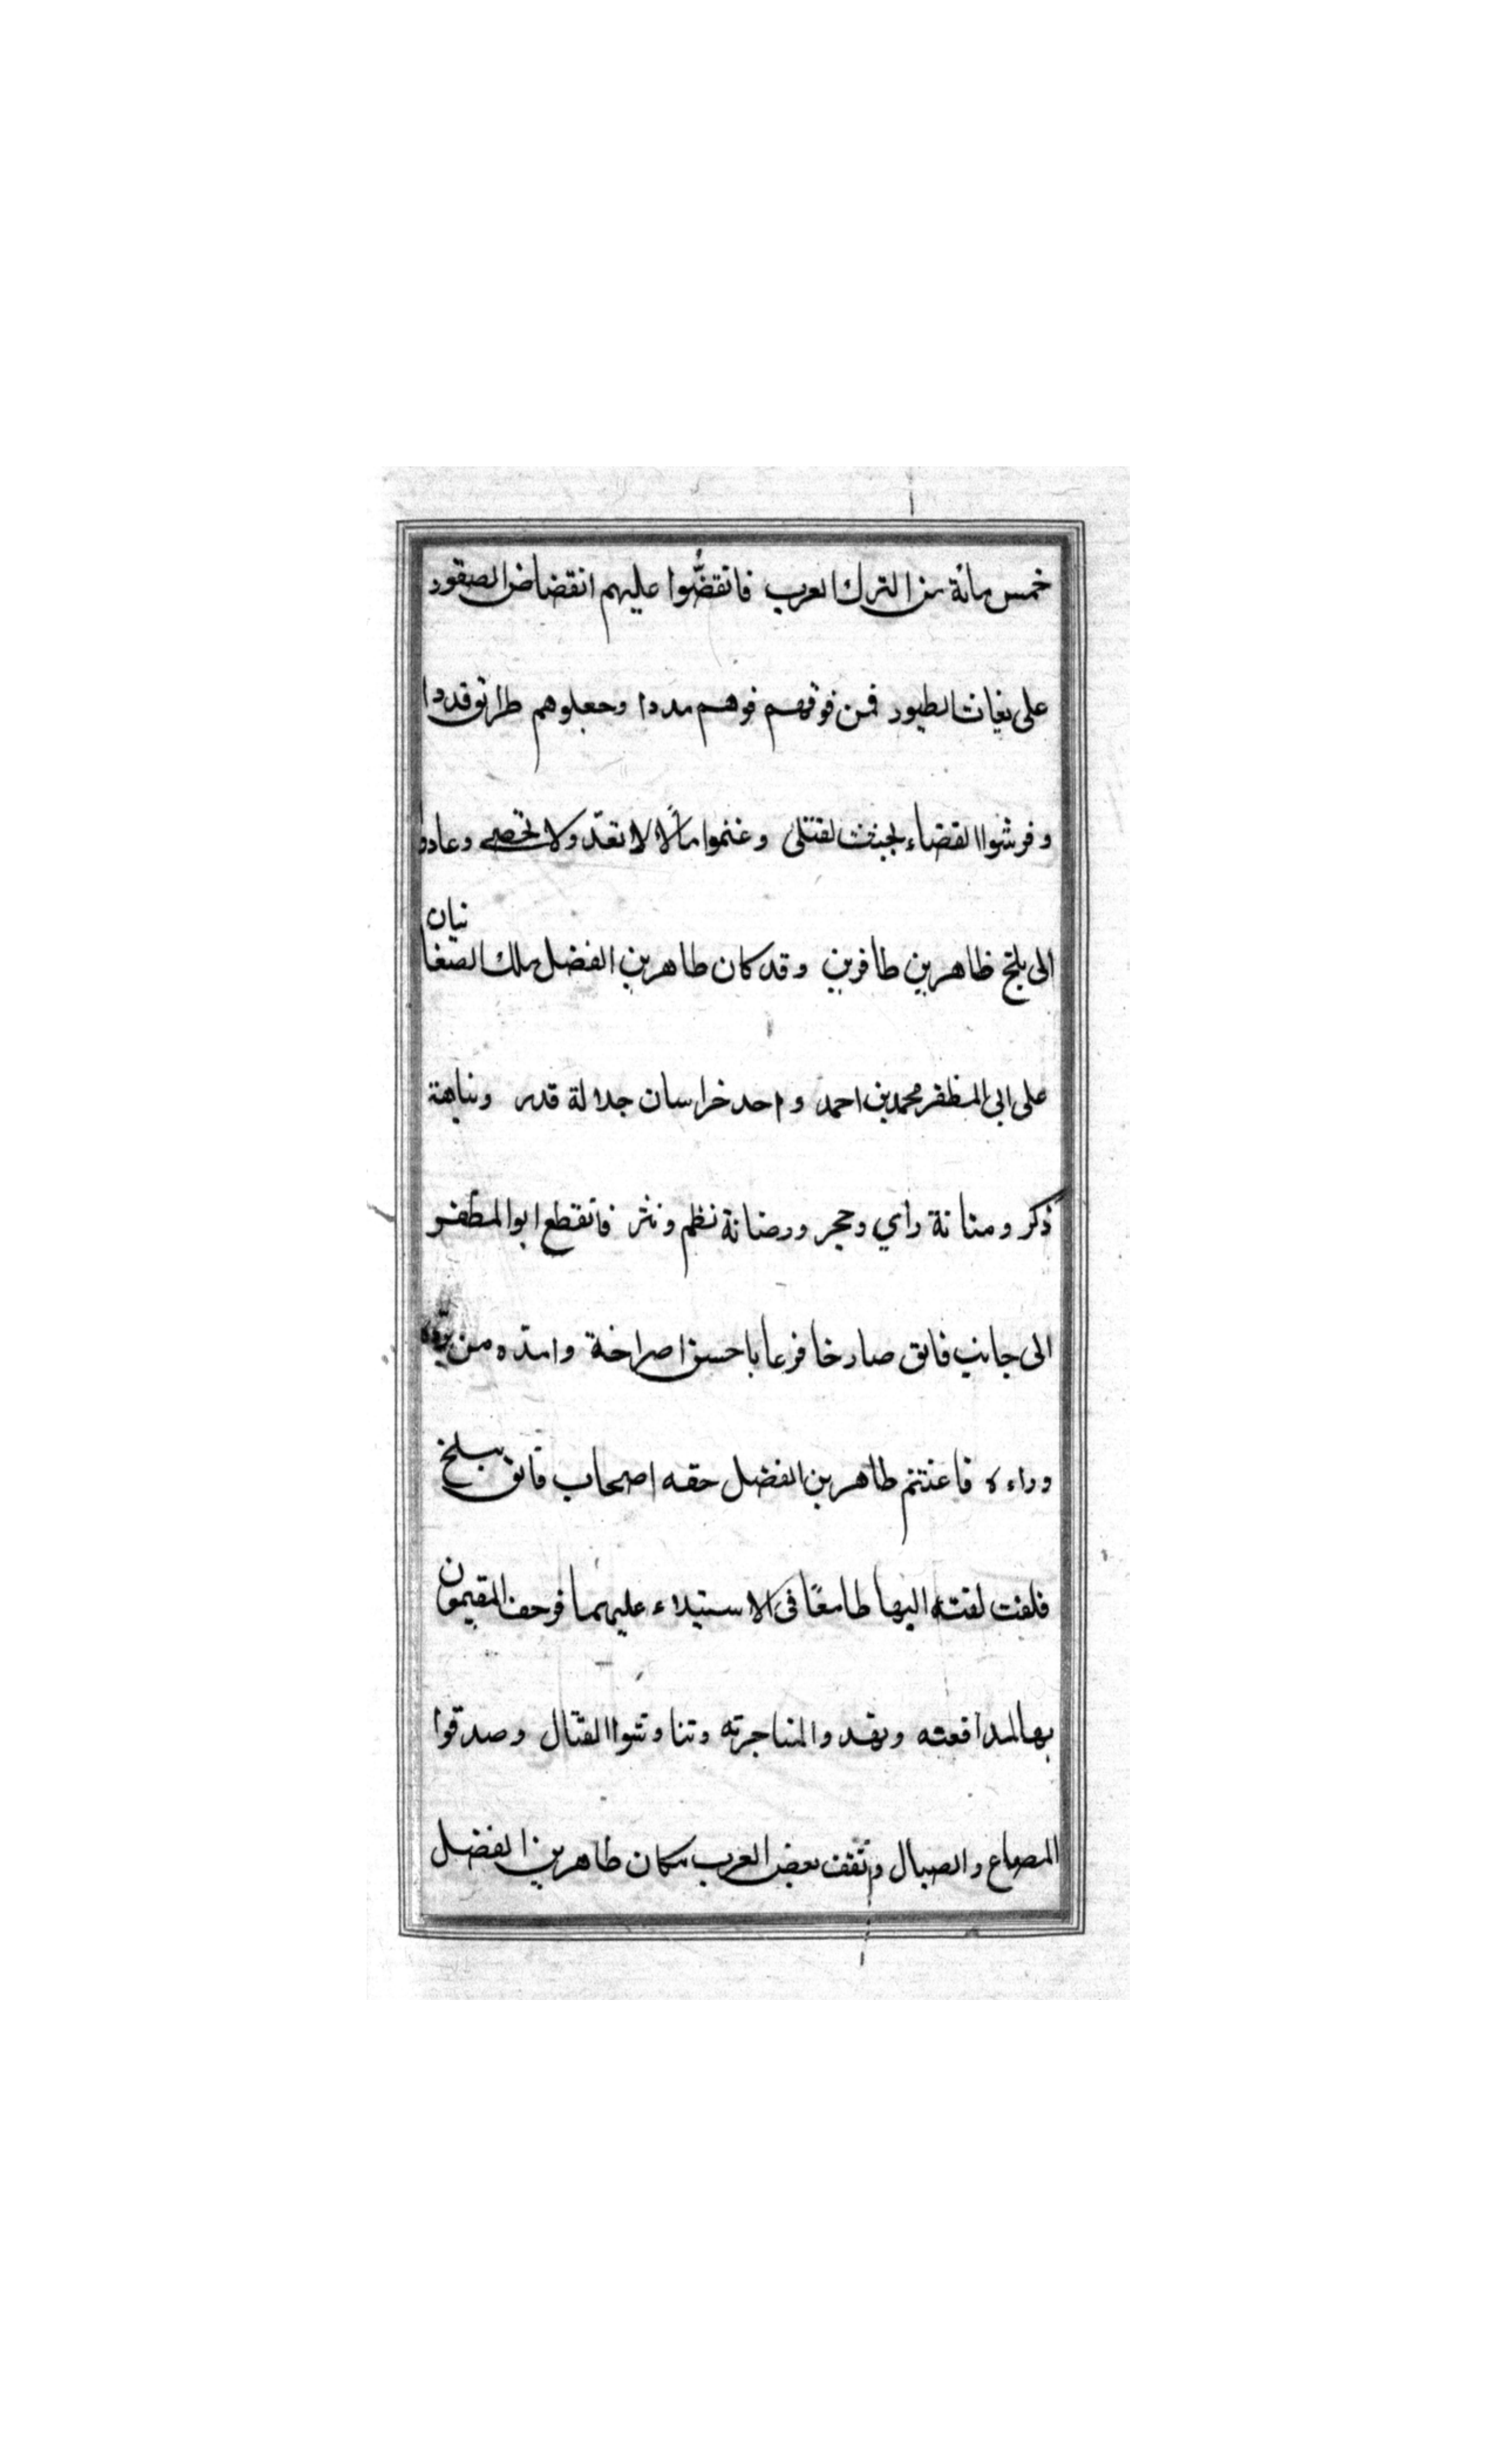 خمس مائة من الترك العرب فانقضُّوا عليهم انقضاض الصقور
على بغاث الطيور فمن فوقهم فوهم مددا وجعلوهم طرائق قددا
وفرشوا القضاء بجثث القتلى وغنموا مالًا لا تعدّ ولا تحصى وعادوا
الى بلخ ظاهرين ظافرين وقد كان طاهر بن الفضل ملك الصغانيان
على ابي المظفر محمد بن احمد واحد خراسان جلالة قدر ونباهة
ذكر ومتانة رأي وحجر ورصانة نظم ونثر فانقطع ابو المظفر
الى جانب فائق صارخا فزعا باحسن اصراخة وامدّه من
وراءه فاغتنم طاهر بن الفضل حقه اصحاب فائق ببلخ
فلفت لفته اليها طامعًا فى الاستيلاء عليهما فوحف المقيمون
بها لمدافعته ونهدوا لمناجرته وتناوشوا القتال وصدقوا
المصاع والصيال وثقف بعض العرب مكان طاهر بن الفضل